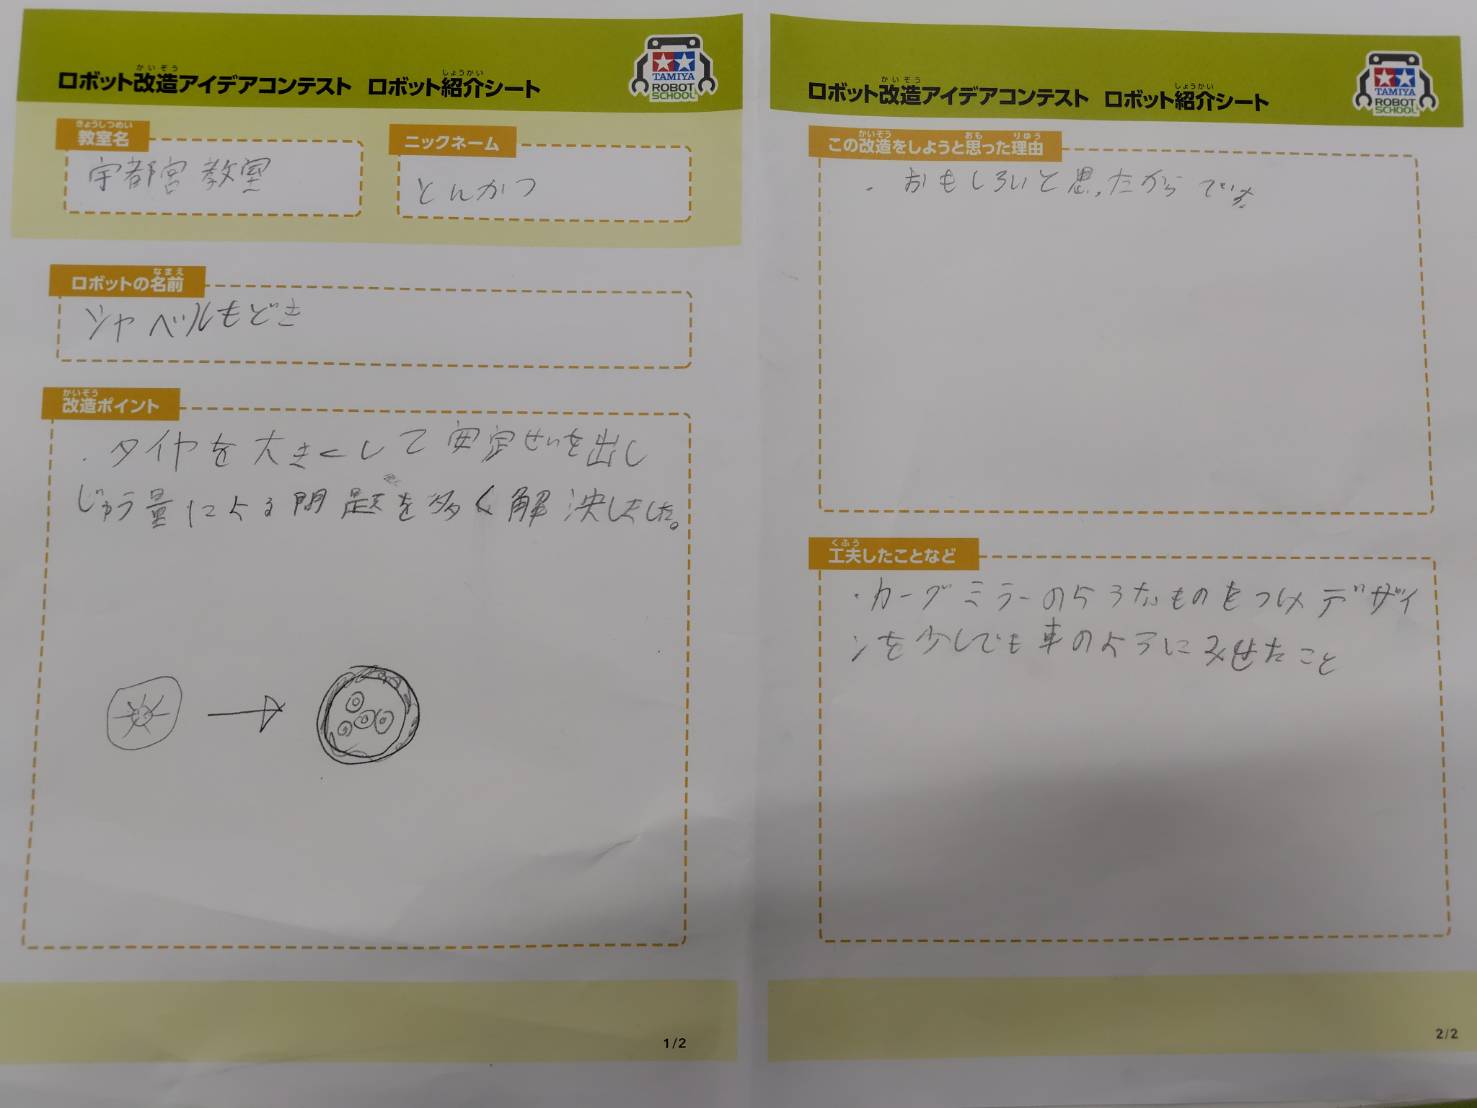 ロボット改造アイデアコンテスト ロボット紹介シート
かいぞう
しょうかい
TAMIYA
ROBOT
SCHOOL
きょうしつめい
教室名
宇都宮教室
ニックネーム
とんかつ
なまえ
ロボットの名前
シャベルもどき
かいぞう
改造ポイント
・タイヤを大きくして安定せいを出し
じゅう量による問題を多く解決しました。
1/2
ロボット改造アイデアコンテスト ロボット紹介シート
かいぞう
しょうかい
TAMIYA
ROBOT
SCHOOL
かいぞう おも りゆう
この改造をしようと思った理由
・おもしろいと思ったからです
くふう
工夫したことなど
・カーブミラーのようなものをつけデザイ
ンを少しでも車のようにみせたこと
2/2